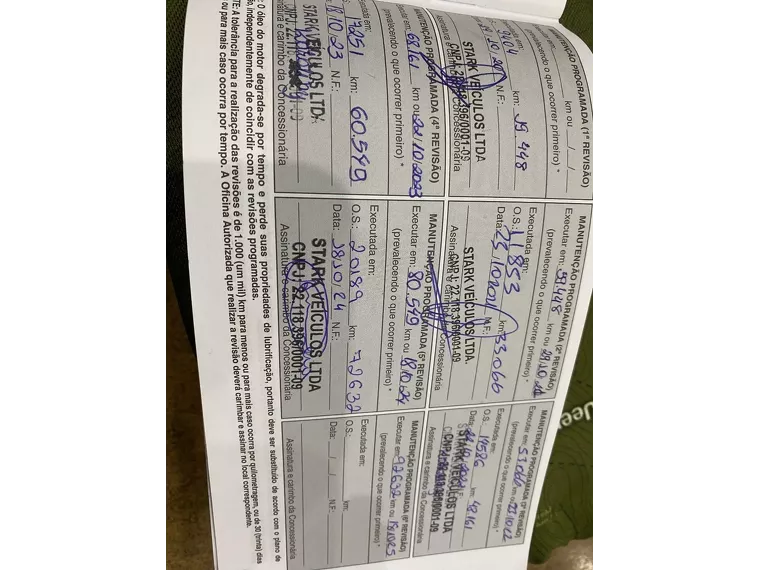 MANUTENÇÃO PROGRAMADA (1ª REVISÃO)
km ou / /
(prevalecendo o que ocorrer primeiro) *
km: 19.448
N.F.:
STARK VEÍCULOS LTDA
CNPJ: 22.118.396/0001-09
Assinatura e carimbo da Concessionária
MANUTENÇÃO PROGRAMADA (2ª REVISÃO)
Executar em: 39.448 km ou
(prevalecendo o que ocorrer primeiro) *
Executada em:
O.S.: 11853 km: 33.066
Data: N.F.:
STARK VEÍCULOS LTDA.
CNPJ: 22.118.396/0001-09
Assinatura e carimbo da Concessionária
MANUTENÇÃO PROGRAMADA (3ª REVISÃO)
Executar em: 53.066 km ou
(prevalecendo o que ocorrer primeiro) *
Executada em:
O.S.: km: 48.161
Data: N.F.:
STARK VEÍCULOS LTDA
CNPJ: 22.118.396/0001-09
Assinatura e carimbo da Concessionária
MANUTENÇÃO PROGRAMADA (4ª REVISÃO)
68.161 km ou 22/10/2023
(prevalecendo o que ocorrer primeiro) *
Executada em:
17251 km: 60.549
18.10.23 N.F.:
STARK VEÍCULOS LTD
Assinatura e carimbo da Concessionária
MANUTENÇÃO PROGRAMADA (5ª REVISÃO)
Executar em: 80.549 km ou 18.10.24
(prevalecendo o que ocorrer primeiro) *
Executada em:
O.S.: 20189 km: 72632
Data: 18/10/24 N.F.:
STARK VEÍCULOS LTDA
CNPJ: 22.118.396/0001-09
Assinatura e carimbo da Concessionária
MANUTENÇÃO PROGRAMADA (6ª REVISÃO)
Executar em: 92632 km ou 18.10.25
(prevalecendo o que ocorrer primeiro) *
Executada em:
O.S.: km:
Data: / / N.F.:
Assinatura e carimbo da Concessionária
O óleo do motor degrada-se por tempo e perde suas propriedades de lubrificação, portanto deve ser substituído de acordo com o plano de
independentemente de coincidir com as revisões programadas.
TE: A tolerância para a realização das revisões é de 1.000 (um mil) km para menos ou para mais caso ocorra por quilometragem, ou de 30 (trinta) dias
ou para mais caso ocorra por tempo. A Oficina Autorizada que realizar a revisão deverá carimbar e assinar no local correspondente.
Jeep